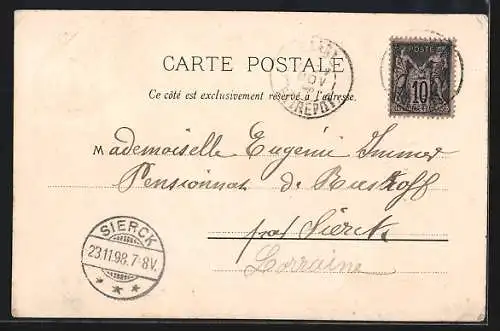 CARTE POSTALE
Ce côté est exclusivement réservé à l'adresse.
POSTE
10
NOV
ENTREPÔT
Mademoiselle Eugénie Immer
Pensionnat de
par Sierck
Lorraine
SIERCK
23.11.98.7-8V.
* * *